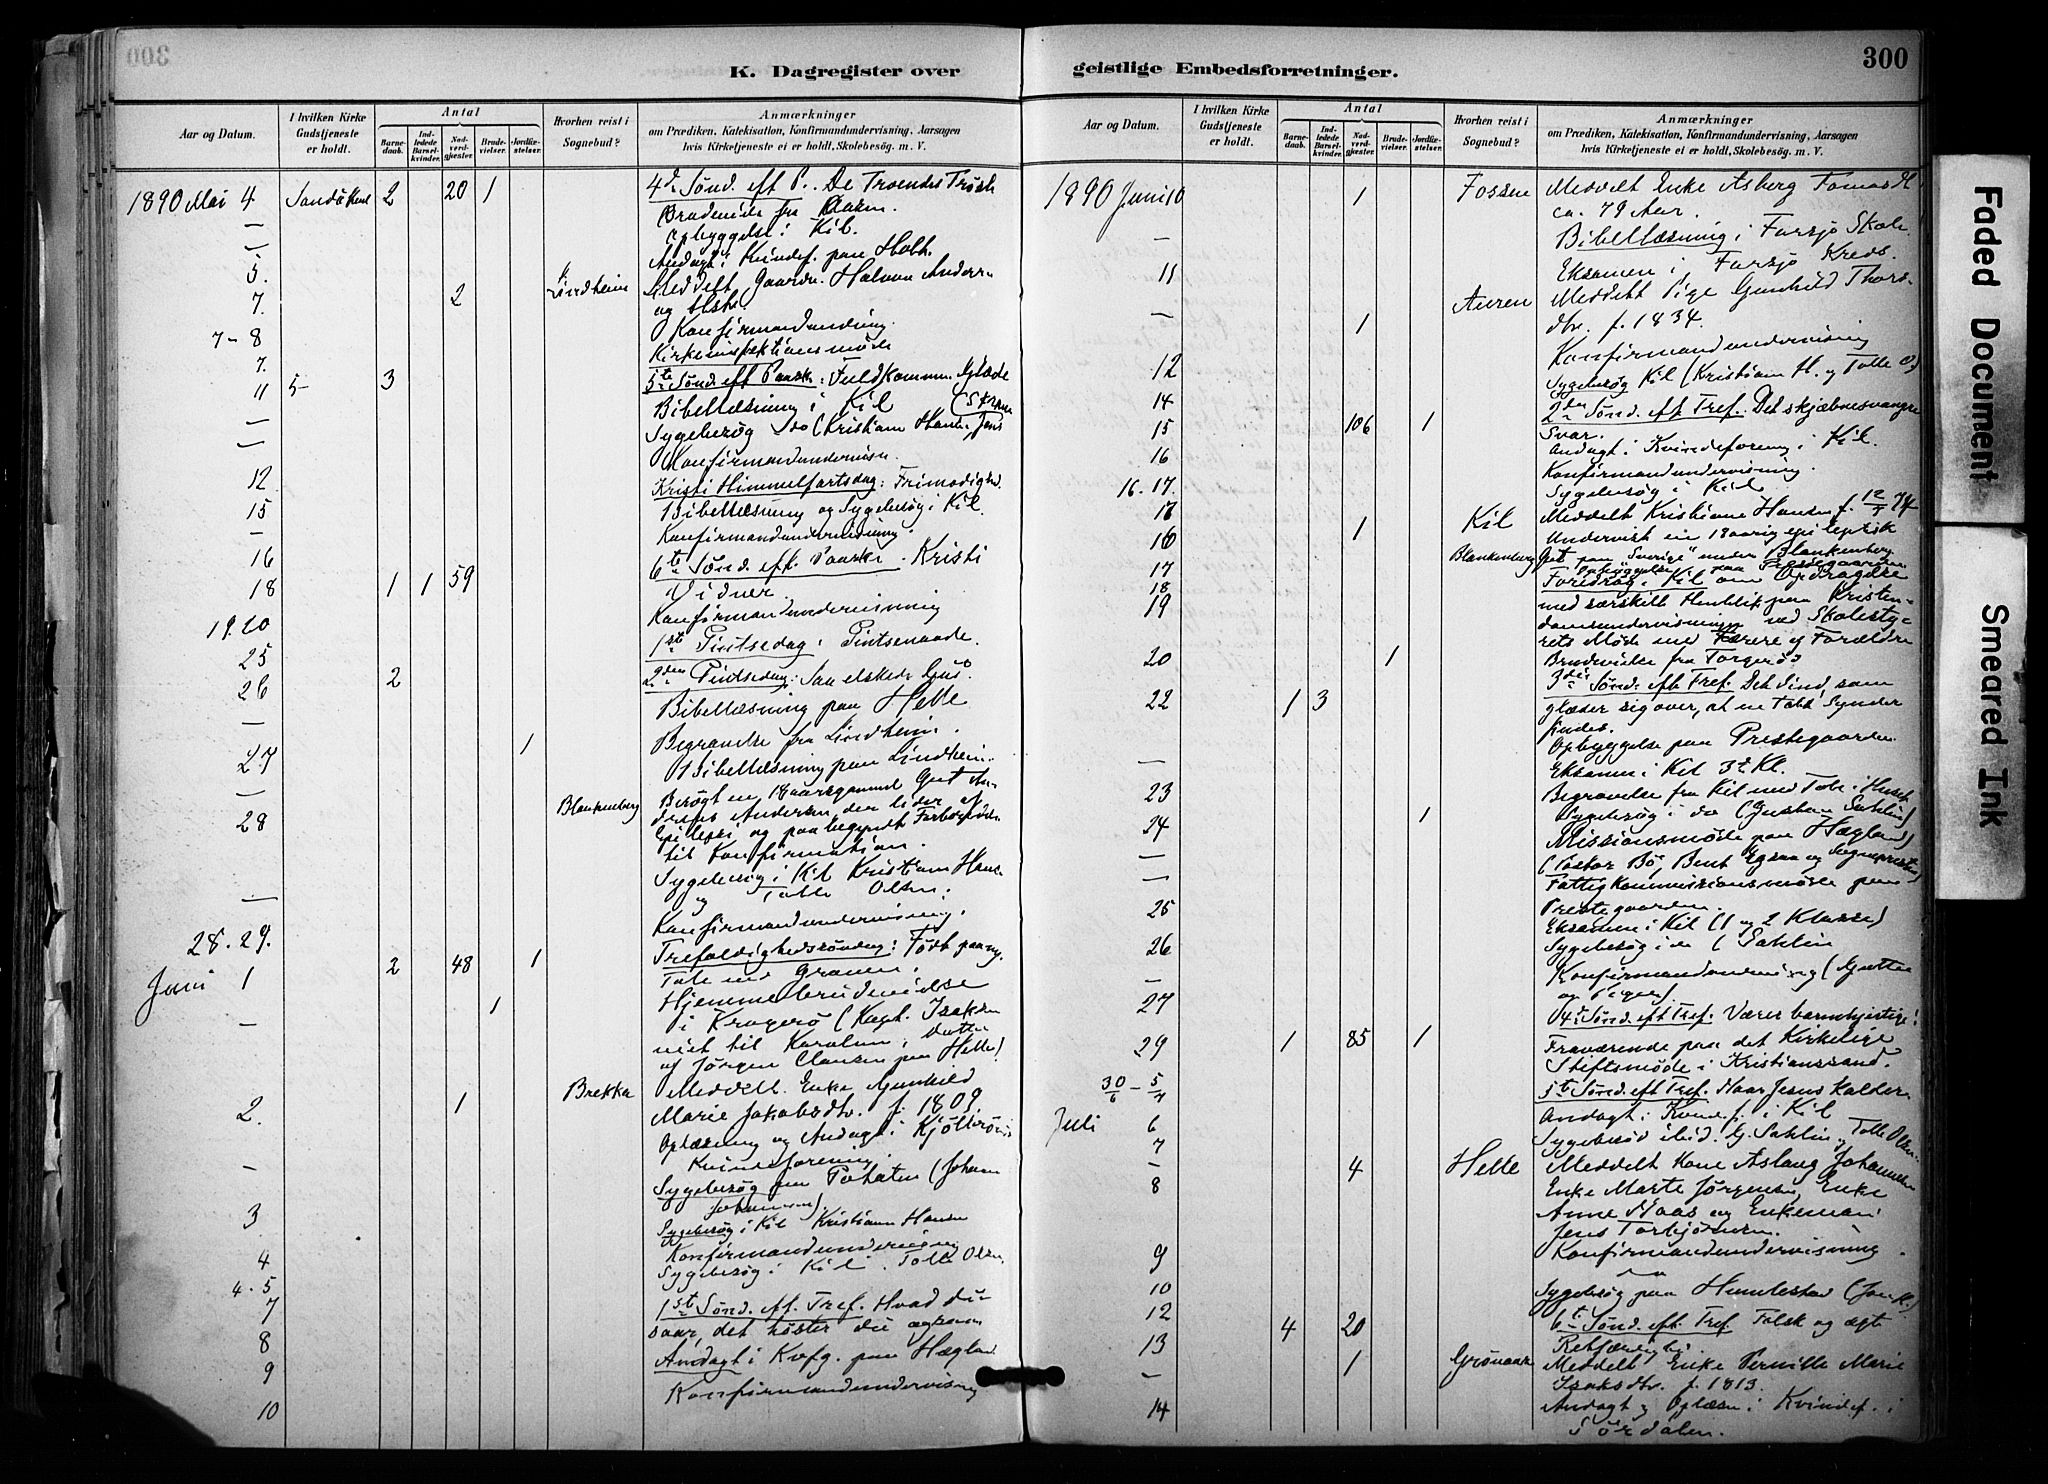 300
K. Dagregister over geistlige Embedsforretninger.
Aar og Datum.
I hvilken Kirke Gudstjeneste er holdt.
Antal
Barnedaab.
Indledede Barselkvinder.
Nadverdgjester
Brudevielser.
Jordfæstelser.
Hvorhen reist i Sognebud?
Anmærkninger
om Prædiken, Katekisation, Konfirmandundervisning, Aarsagen
hvis Kirketjeneste ei er holdt, Skolebesøg. m. V.
1890 Mai 4 2 20 1 4de Sønd. eft P. De Troendes Trøst
Brudevielse fra
— Opbyggelse i Kil.
— Andagt i Kvindef. paa Holt.
5.
7. 2 Lindheim Meddelt Gaardm. Halvor Anders.
og
7-8 Konfirmandundervisning.
7. Kirkeinspektionsmøde
11 5- 3 5te Sønd. eft Paaske: Fuldkommen Glæde
— Bibellæsning i Kil
— Sygebesøg do (Kristian Hansen, Jens
12 Konfirmandundervisn.
15 Kristi Himmelfartsdag: Frimodighed.
— Bibellæsning og Sygebesøg i Kil.
16 Konfirmandundervisning.
18 1 1 59 6te Sønd. eft. Paaske. Kristi
Vidner.
19.20 Konfirmandundervisning
25 1st Pintsedag: Pintsenaade.
26 2 2den Pintsedag: Saa elskede Gud.
— Bibellæsning paa Helle
27 1 Begravelse fra Lindheim.
— Bibellæsning paa Lindheim.
28 Blankenberg Besøgt en 18 aarsgammel Gut
Andersen, der lider af
Epilepsi og paabegyndt Forberedelse
til Konfirmation.
— Sygebesøg i Kil Kristian Hans.
og Tolle Olsen.
28.29. Konfirmandundervisning.
Juni 1 2 48 1 Trefoldighedssøndag: Født paany.
Tale ved Graven.
— 1 Hjemmebrudevielse
i Kragerø (Kapt. Isaksen
viet til Karoline, Datter
af Jørgen Clausen paa Helle)
2. 1 Brekka Meddelt Enke Gunhild
Marie Jakobsdtr. f. 1809
— Oplæsning og Andagt i
Kvindeforening.
3 Sygebesøg paa (Johan
Johannesen).
4 Sygebesøg i Kil Kristian Hansen
4.5 Konfirmandundervisning
7 Sygebesøg i Kil. Tolle Olsen.
8 1st Sønd. eft. Tref. Hvad du
saar, det høster du ogsaa
9 Andagt i Kvfg. paa Hægland
10 Konfirmandundervisning
1890 Juni 10 1 Fossen Meddelt Enke Asberg
ca. 79 Aar.
— Bibellæsning i Farsjø Skole.
11 Eksamen i Farsjø Kreds.
— 1 Auren Meddelt Pige Gunhild Thors
dtr. f. 1834.
12 Konfirmandundervisning
14 Sygebesøg Kil (Kristian H. og Tolle O.)
15 106 1 2den Sønd. eft Tref. Det skjæbnesvangre
Svar.
16 Andagt i Kvindeforening i Kil.
16.17. Konfirmandundervisning.
17 Sygebesøg i Kil
16 1 Kil Meddelt Kristiane Hansen f.
17 Blankenberg Undervist en 18 aarig epileptisk
Gut paa "Sverige" under Blankenberg
18 Opbyggelse paa Prestegaarden
19 Foredrag i Kil om Opdragelse
med særskilt Henblik paa Kristen-
domsundervisningen ved Skolesty-
rets Møde med Lærere og Forældre
20 1 Brudevielse fra
22 1 3 3die Sønd. eft Tref. Det Sind, som
glæder sig over, at en tabt Synder
findes.
— Opbyggelse paa Prestegaarden
23 Eksamen i Kil 3de Kl.
24 1 Begravelse fra Kil med Tale i Huset
— Sygebesøg i do (Gustav Sahlin)
— Missionsmøde paa Hægland
(Pastor Bø, Bent og Sognepresten)
25 Fattigkommissionsmøde paa
Prestegaarden.
26 Eksamen i Kil (1 og 2 Klasse)
— Sygebesøg i do (Sahlin
27 Konfirmandundervisning (Gutter
og Piger).
29 1 85 1 4de Sønd. eft Tref. Værer barmhjertige!
30/6 – 5/7 Fraværende paa det Kirkelige
Stiftsmøde i Kristianssand.
Juli 6 5te Sønd. eft Tref. Naar Jesus kalder
7 Andagt i Kvindef. i Kil
— Sygebesøg ibid. G. Sahlin, Tolle Olsen.
8 4 Helle Meddelt Kone Aslaug Johannesen
Enke Marte Jørgensen, Enke
Anne Haas og Enkemand
Jens Torbjørnsen.
9 Konfirmandundervisning
10
12 Sygebesøg paa Humlestad
13 4 20 6te Sønd. eft. Tref. Falsk og ægte
Retfærdighed.
— 1 Grønaas Meddelt Enke Pernille Marie
Isaksdtr. f. 1813.
14 Andagt og Oplæsn. i Kvindef. i
Sørdalen.
Faded Document
Smeared Ink